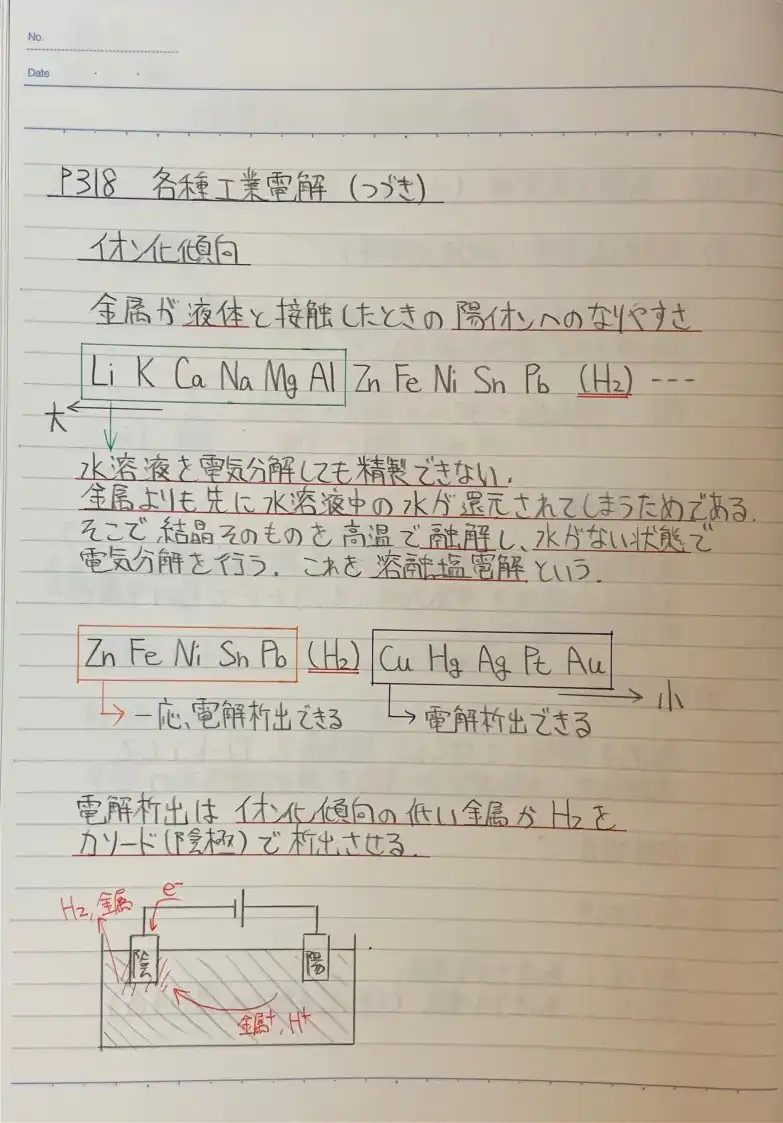 No.
Date
P318 各種工業電解 (つづき)
イオン化傾向
金属が液体と接触したときの陽イオンへのなりやすさ
Li K Ca Na Mg Al Zn Fe Ni Sn Pb (H₂) ---
大
水溶液を電気分解しても精製できない.
金属よりも先に水溶液中の水が還元されてしまうためである.
そこで結晶そのものを高温で融解し、水がない状態で
電気分解を行う. これを溶融塩電解という.
Zn Fe Ni Sn Pb (H₂) Cu Hg Ag Pt Au
小
一応、電解析出できる 電解析出できる
電解析出はイオン化傾向の低い金属かH₂を
カソード(陰極)で析出させる.
e⁻
H₂, 金属
陰 陽
金属⁺, H⁺